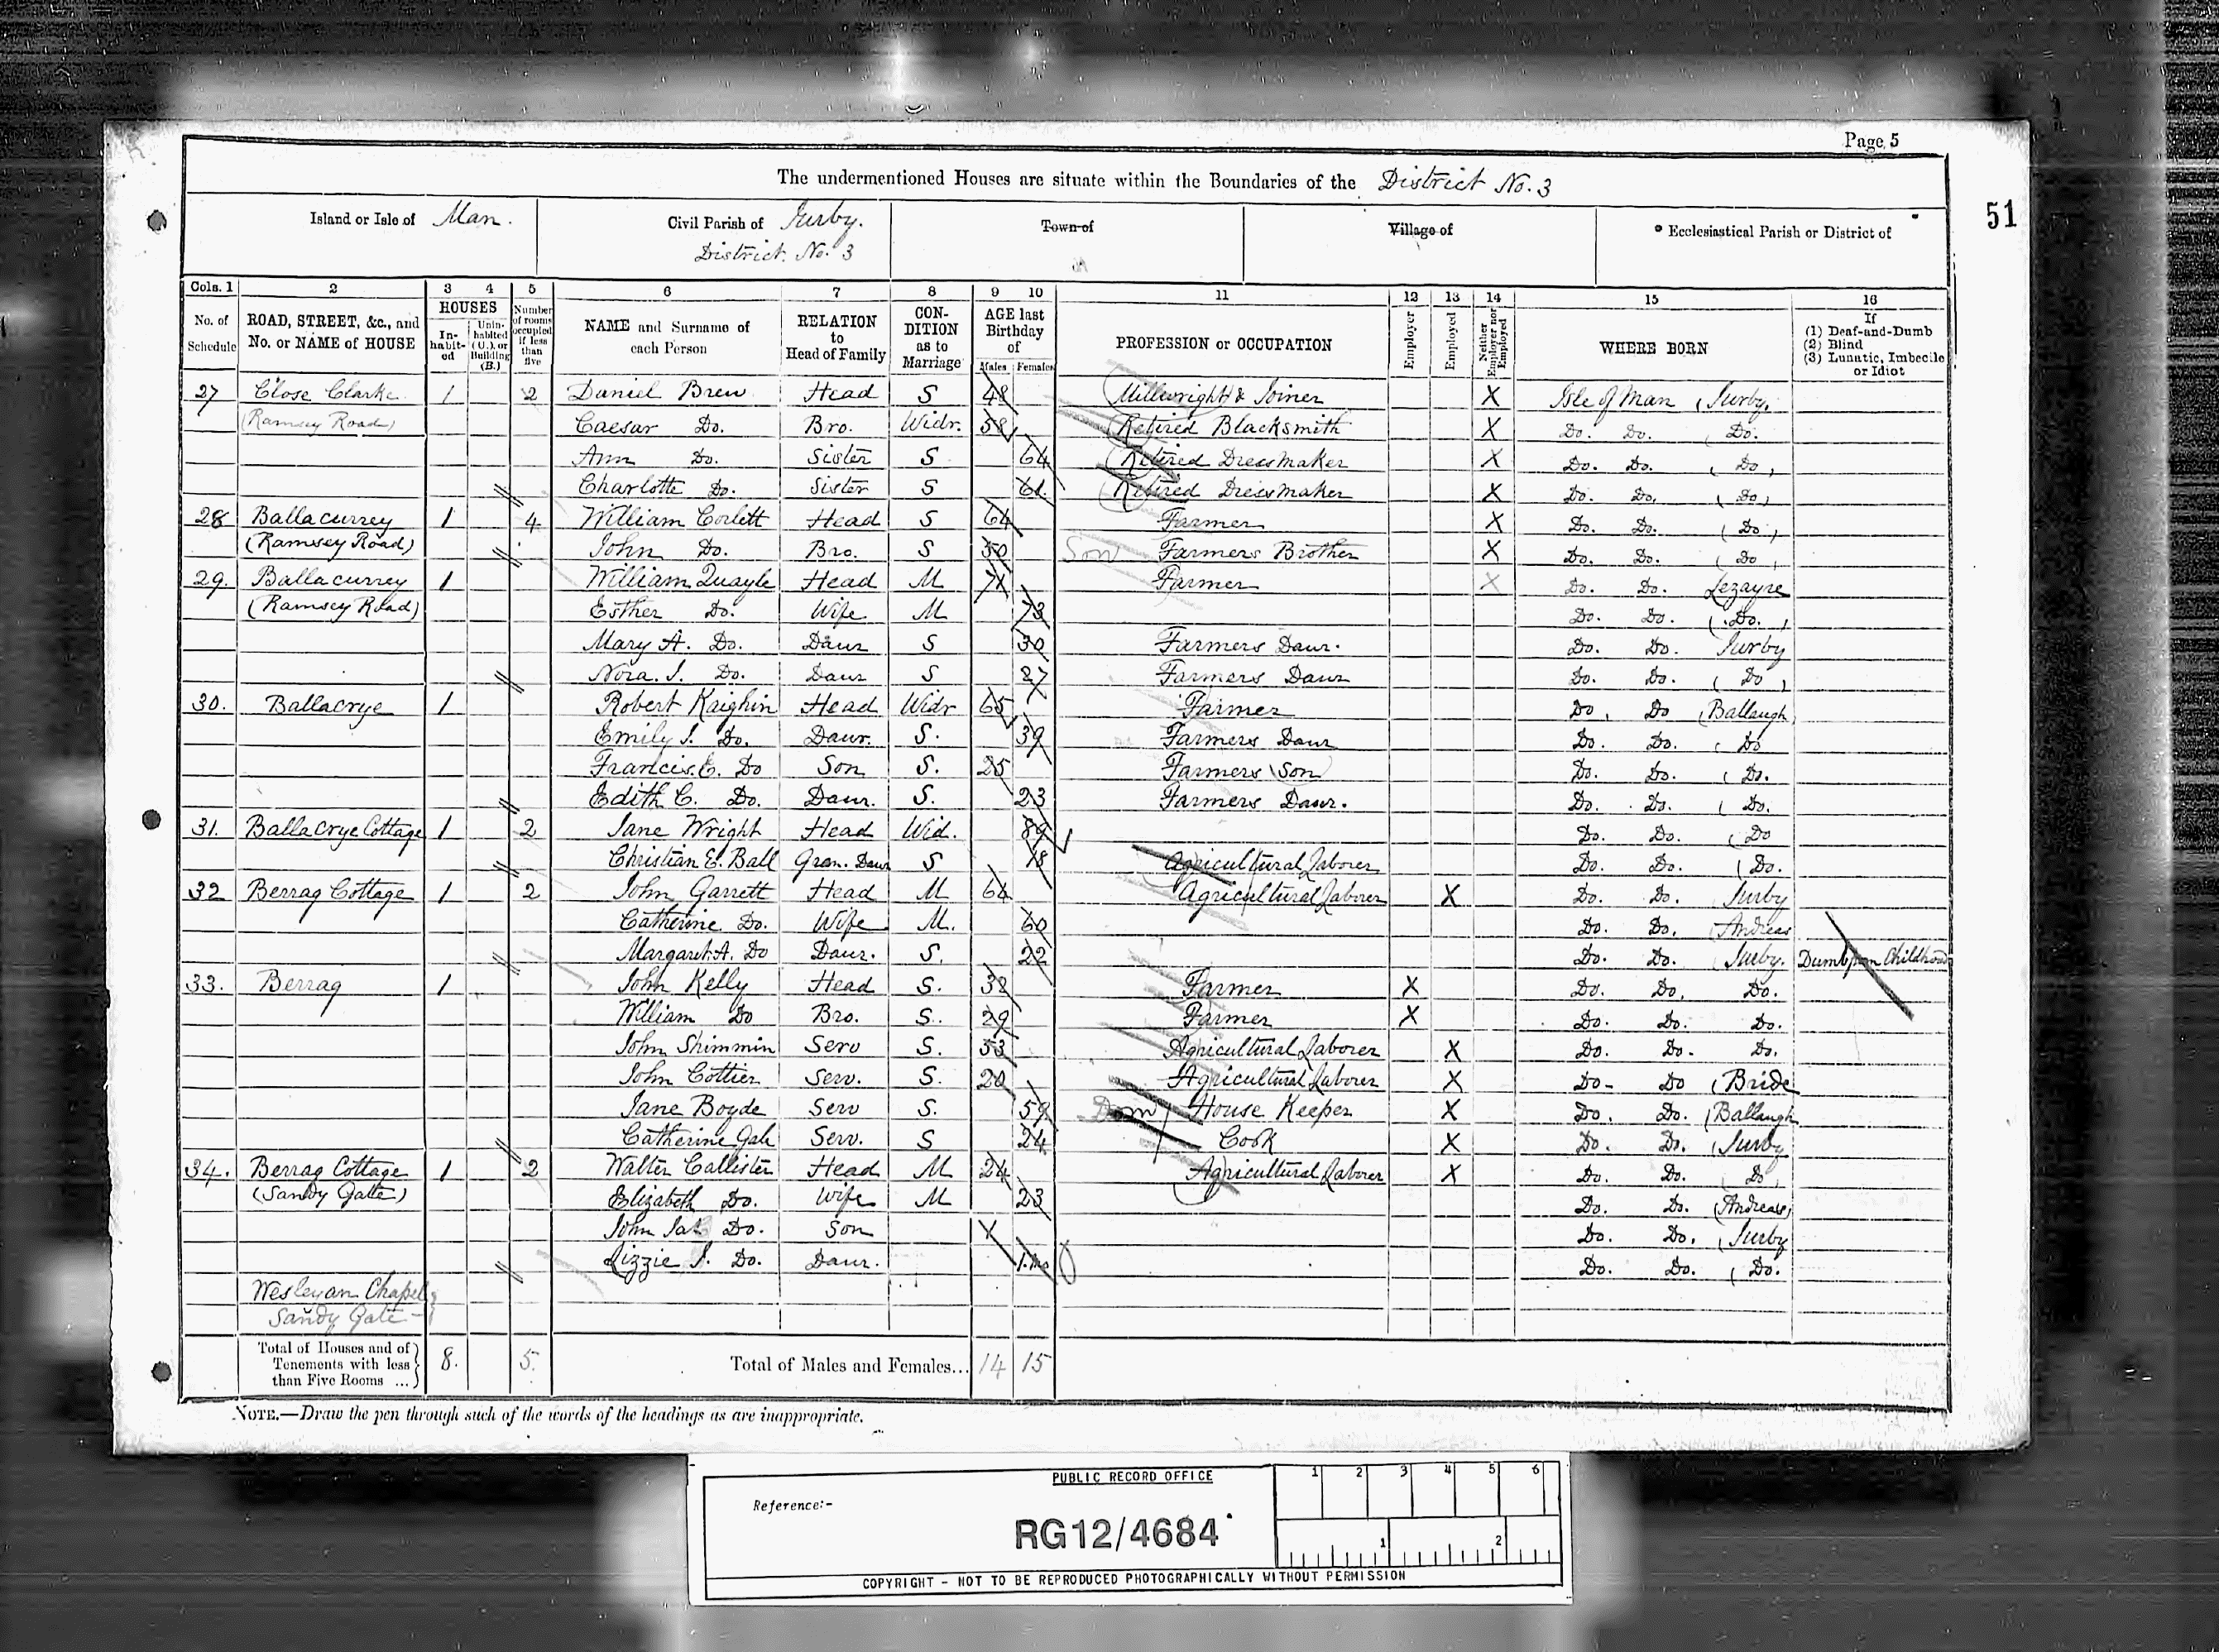 Page 5
The undermentioned Houses are situate within the Boundaries of the District No. 3
51
Island or Isle of Man.
Civil Parish of Jurby.
District. No. 3
Town of
Village of
Ecclesiastical Parish or District of
Cols. 1 2 3 4 5 6 7 8 9 10 11 12 13 14 15 16
No. of Schedule
ROAD, STREET, &c., and No. or NAME of HOUSE
HOUSES
In-habit-ed
Unin-habited (U.), or Building (B.)
Number of rooms occupied if less than five
NAME and Surname of each Person
RELATION to Head of Family
CON-DITION as to Marriage
AGE last Birthday of
Males Females
PROFESSION or OCCUPATION
Employer
Employed
Neither Employer nor Employed
WHERE BORN
If
(1) Deaf-and-Dumb
(2) Blind
(3) Lunatic, Imbecile or Idiot
27 Close Clarke 1 2 Daniel Brew Head S 48 Millwright & Joiner X Isle of Man (Jurby.
(Ramsey Road) Caesar Do. Bro. Widr. 58 Retired Blacksmith X Do. Do. (Do.
Ann Do. Sister S 64 Retired Dressmaker X Do. Do. (Do,
Charlotte Do. Sister S 61. Retired Dressmaker X Do. Do, (Do)
28 Ballacurrey 1 4 William Corlett Head S 64 Farmer X Do. Do. (Do,
(Ramsey Road) John Do. Bro. S 50 Son Farmers Brother X Do. Do. (Do,
29. Ballacurrey 1 William Quayle Head M 71 Farmer X Do. Do. Lezayre
(Ramsey Road) Esther Do. Wife M 73 Do. Do. (Do.,
Mary A. Do. Daur S 30 Farmers Daur. Do. Do. Jurby
Nora. J. Do. Daur S 27 Farmers Daur Do. Do. (Do,
30. Ballacrye 1 Robert Kaighin Head Widr 65 Farmer Do, Do (Ballaugh
Emily J. Do. Daur. S. 39 Farmers Daur Do. Do. (Do
Francis. E. Do Son S. 25 Farmers Son Do. Do. (Do.
Edith C. Do. Daur. S. 23 Farmers Daur. Do. Do. (Do.
31. Ballacrye Cottage 1 2 Jane Wright Head Wid. 89 Do. Do. (Do
Christian E. Ball Gran. Daur S 18 Agricultural Laborer Do. Do. (Do.
32 Berrag Cottage 1 2 John Garrett Head M 64 Agricultural Laborer X Do. Do. Jurby
Catherine. Do. Wife M. 60 Do. Do. (Andreas
Margaret. A. Do Daur. S. 22 Do. Do. (Jurby. Dumb from Childhood
33. Berrag 1 John Kelly Head S. 32 Farmer X Do. Do. Do.
William Do Bro. S. 29 Farmer X Do. Do. Do.
John Shimmin Serv S. 53 Agricultural Laborer X Do. Do. Do.
John Cottier Serv. S. 20 Agricultural Laborer X Do- Do (Bride
Jane Boyde Serv S. 59 Dom House Keeper X Do. Do. (Ballaugh
Catherine Gale Serv. S 24 Cook X Do. Do. (Jurby
34. Berrag Cottage 1 2 Walter Callister Head M 24 Agricultural Laborer X Do. Do. (Do,
(Sandy Gate) Elizabeth Do. Wife M 23 Do. Do. (Andreas)
John Jas. Do. Son Do. Do. (Jurby
Lizzie J. Do. Daur. 1.mo Do. Do. (Do.
Wesleyan Chapel
Sandy Gate
Total of Houses and of Tenements with less than Five Rooms ... 8. 5. Total of Males and Females... 14 15
NOTE.—Draw the pen through such of the words of the headings as are inappropriate.
PUBLIC RECORD OFFICE
1 2 3 4 5 6
Reference:-
RG12/4684
1 2
COPYRIGHT - NOT TO BE REPRODUCED PHOTOGRAPHICALLY WITHOUT PERMISSION